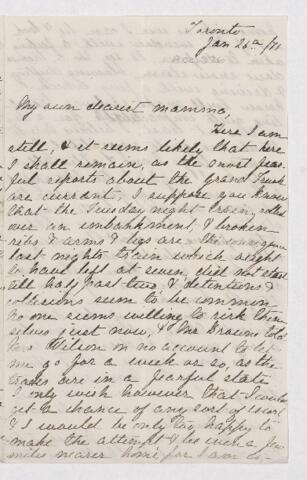 Toronto
Jan 26th /71
My own dearest mamma,
Here I am
still, & it seems likely that here
I shall remain, as the most fear-
ful reports about the Grand Trunk
are current, I suppose you know
that the Tuesday night train, rolled
over an embankment, & broken
ribs & arms & legs are the consequence
last nights train which ought
to have left at seven, did not start
till half past two, & detentions &
collisions seem to be common
no one seems willing to risk them
selves just now, & Mr Brown told
Mrs Wilson on no account to let
me go for a week or so, as the
roads are in a fearful state
I only wish however that I could
get a chance of any sort of escort
& I would be only too happy to
make the attempt & be even a few
miles nearer home, for I am